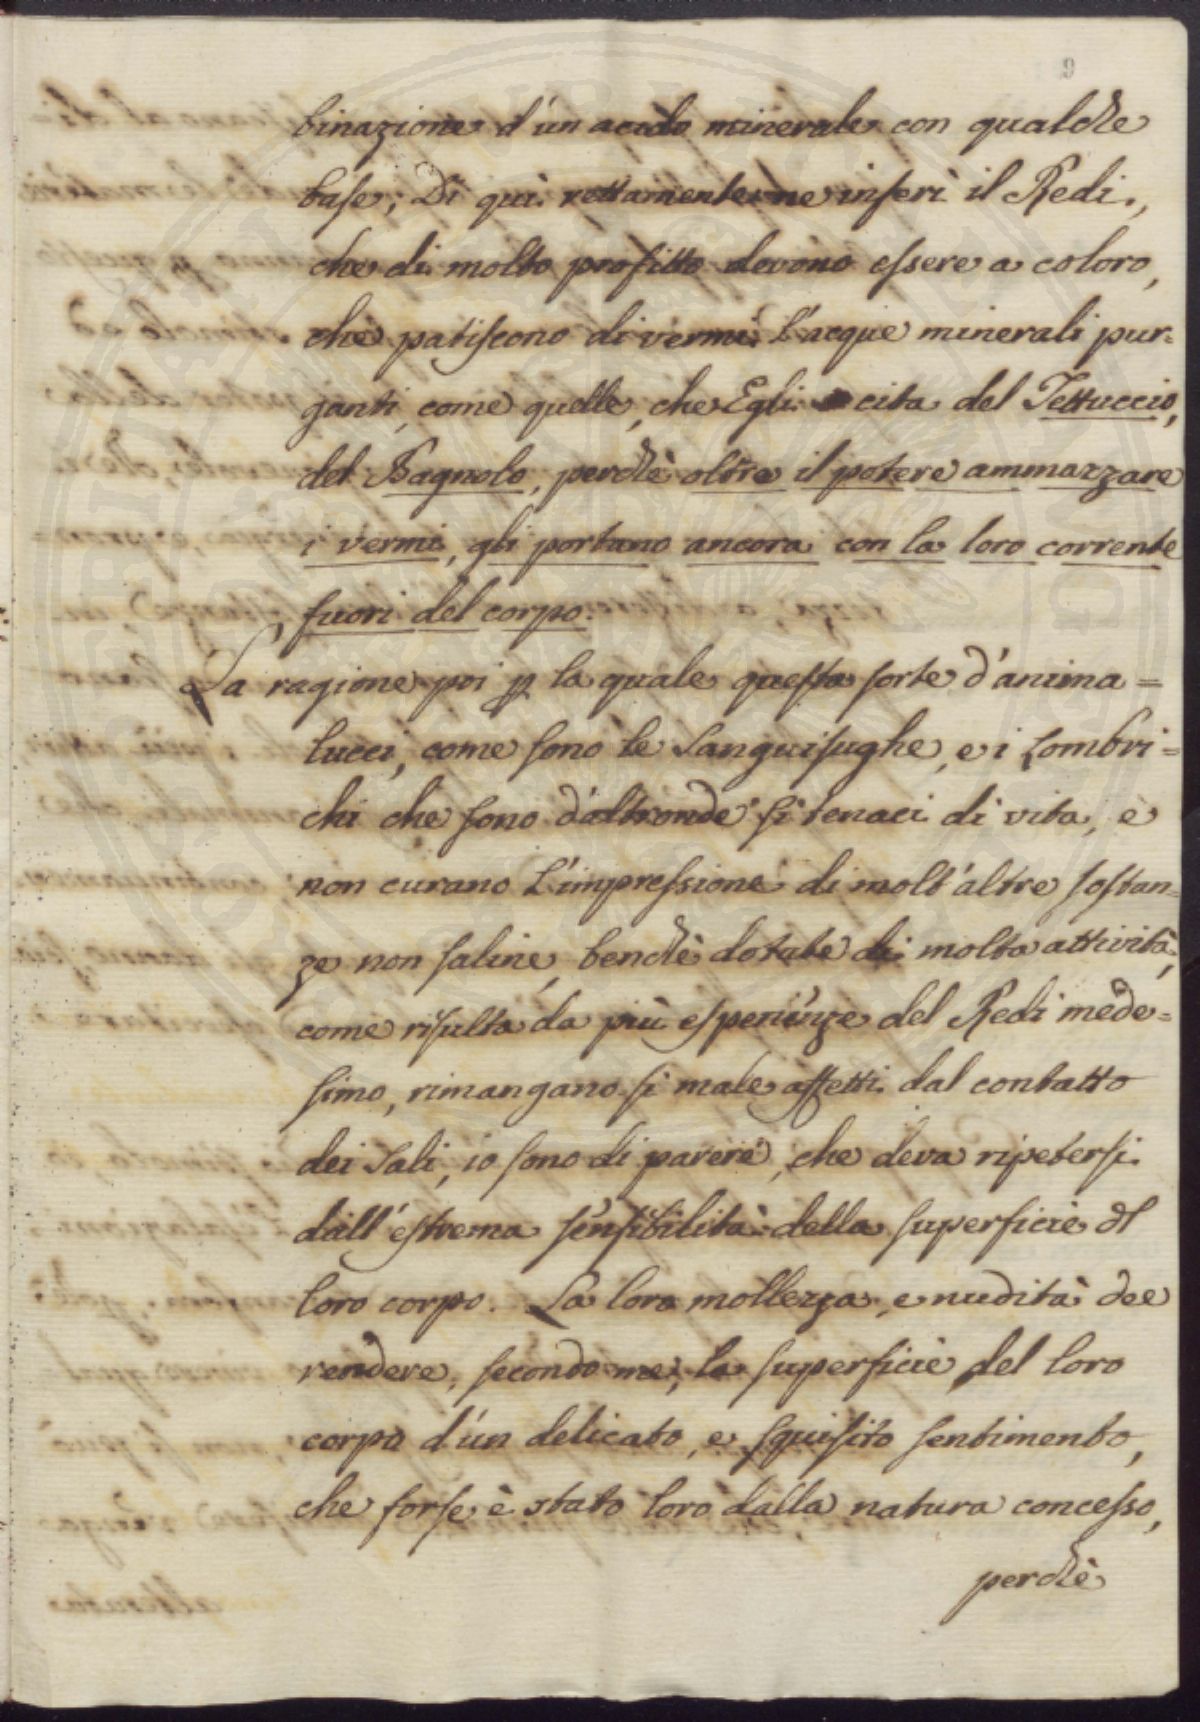 9
binazione d'un acido minerale con qualche
base; Di quì rettamente ne inferì il Redi,
che di molto profitto devono essere a coloro,
che patiscono di vermi l'acque minerali pur=
ganti, come quelle, che Egli cita del Tettuccio,
del Bagnolo, perchè oltre il potere ammazzare
i vermi, gli portano ancora con la loro corrente
fuori del corpo.
La ragione poi p la quale questa sorte d'anima=
lucci, come sono le Sanguisughe, e i Lombri=
chi che sono d'altronde sì tenaci di vita, e
non curano l'impressione di molt'altre sostan=
ze non saline, benchè dotate di molta attività,
come risulta da più esperienze del Redi mede=
simo, rimangano sì male affetti dal contatto
dei Sali, io sono di parere, che deva ripetersi
dall'estrema sensibilità della superficie dl
loro corpo. La loro mollezza, e nudità dee
rendere, secondo me, la superficie del loro
corpo d'un delicato, e squisito sentimento,
che forse è stato loro dalla natura concesso,
perchè